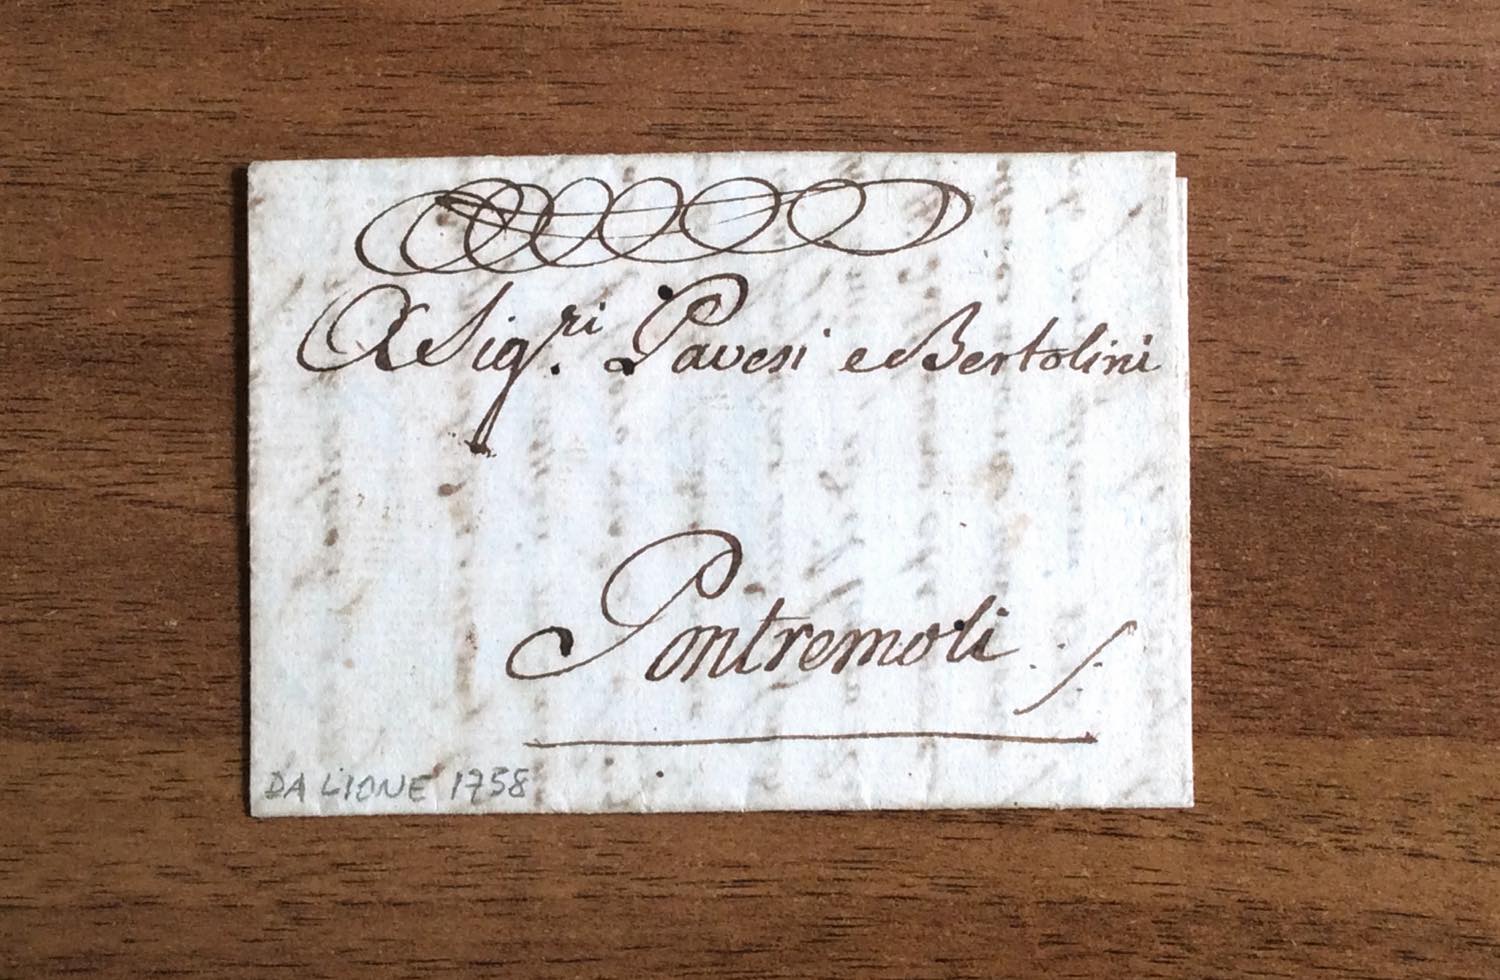 A Sig.ri Pavesi e Bertolini
Pontremoli
DA LIONE 1758